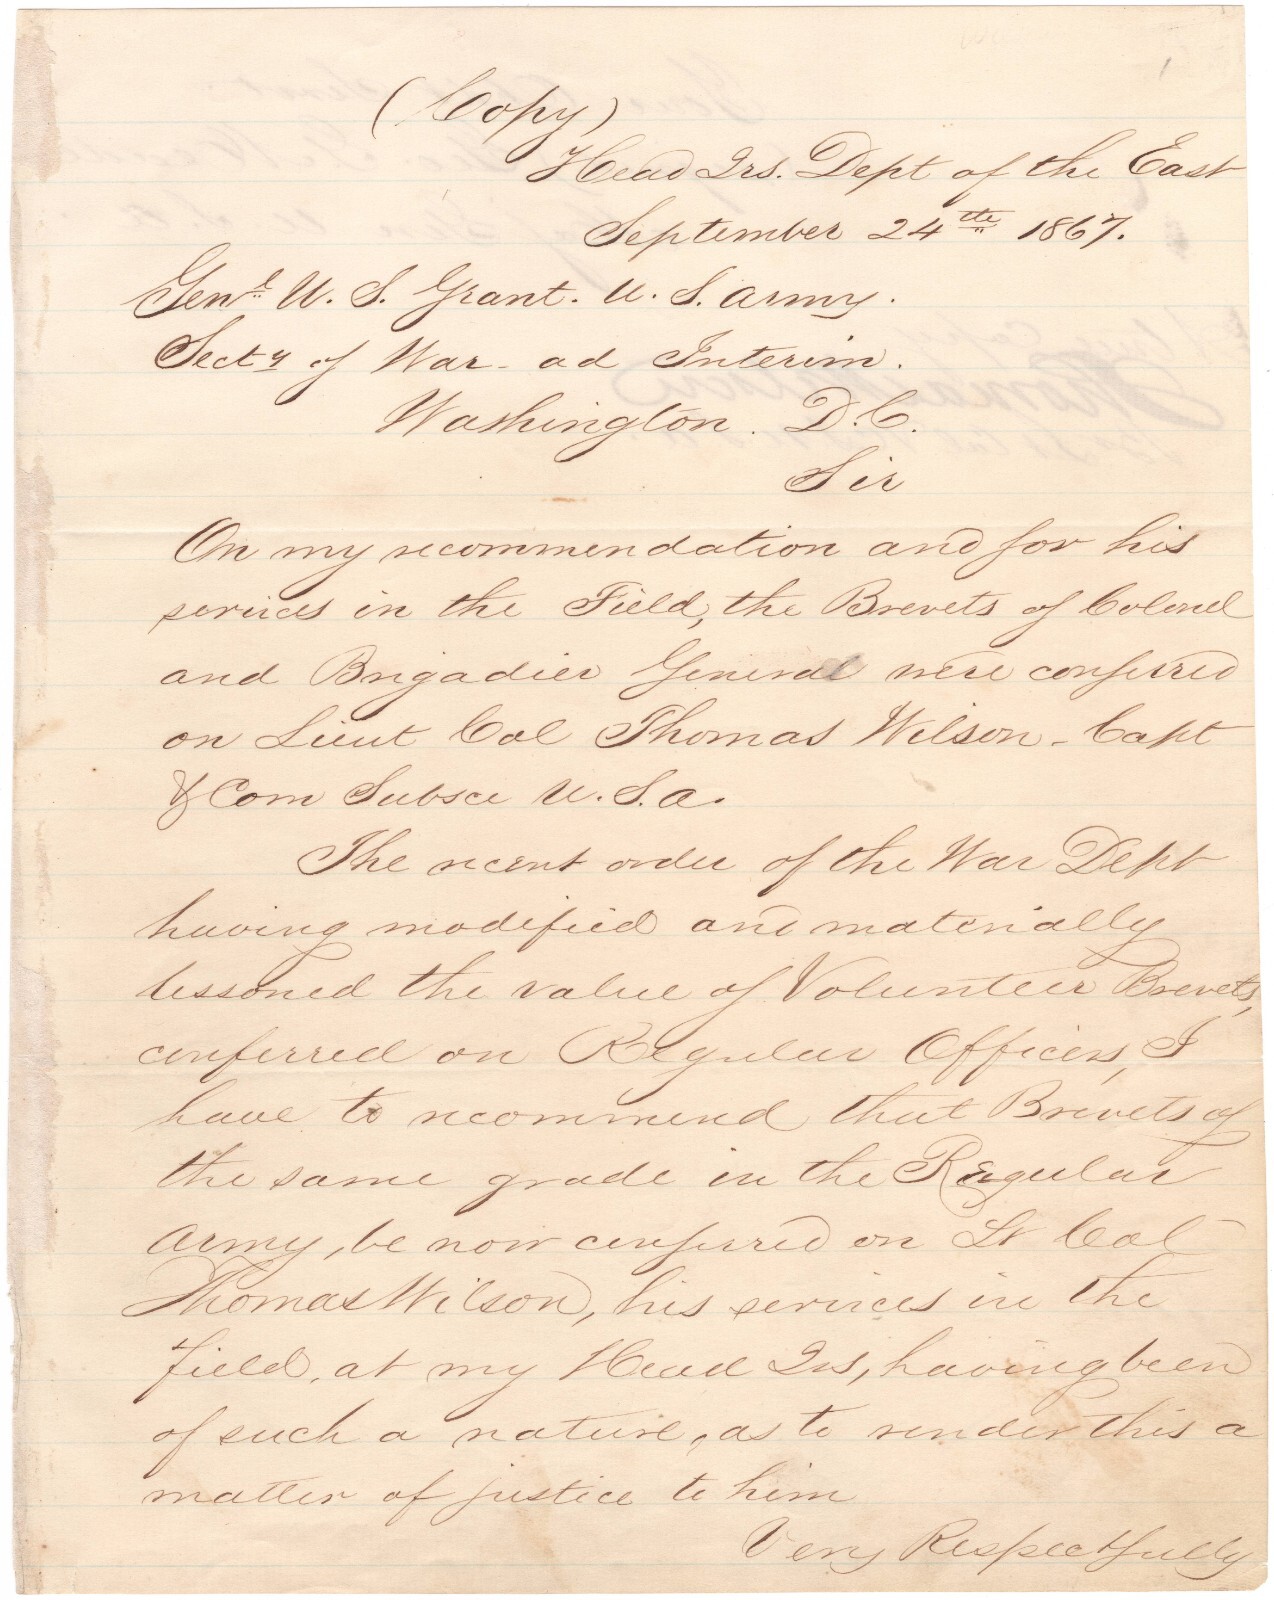 (Copy)
Head Qrs. Dept of the East
September 24th 1867.
Genl U. S. Grant. U. S. Army.
Secty of War - ad Interim.
Washington. D. C.
Sir
On my recommendation and for his
services in the Field, the Brevets of Colonel
and Brigadier General were conferred
on Lieut Col Thomas Wilson - Capt
& Com Subsce U. S. A.
The recent order of the War Dept
having modified and materially
lessoned the value of Volunteer Brevets,
conferred on Regular Officers, I
have to recommend that Brevets of
the same grade in the Regular
Army, be now conferred on Lt Col
Thomas Wilson, his services in the
field, at my Head Qrs, having been
of such a nature, as to render this a
matter of justice to him
Very Respectfully